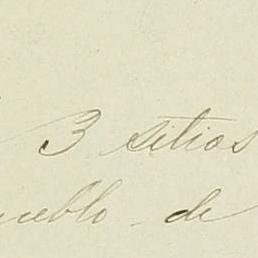 3 sitios
pueblo de